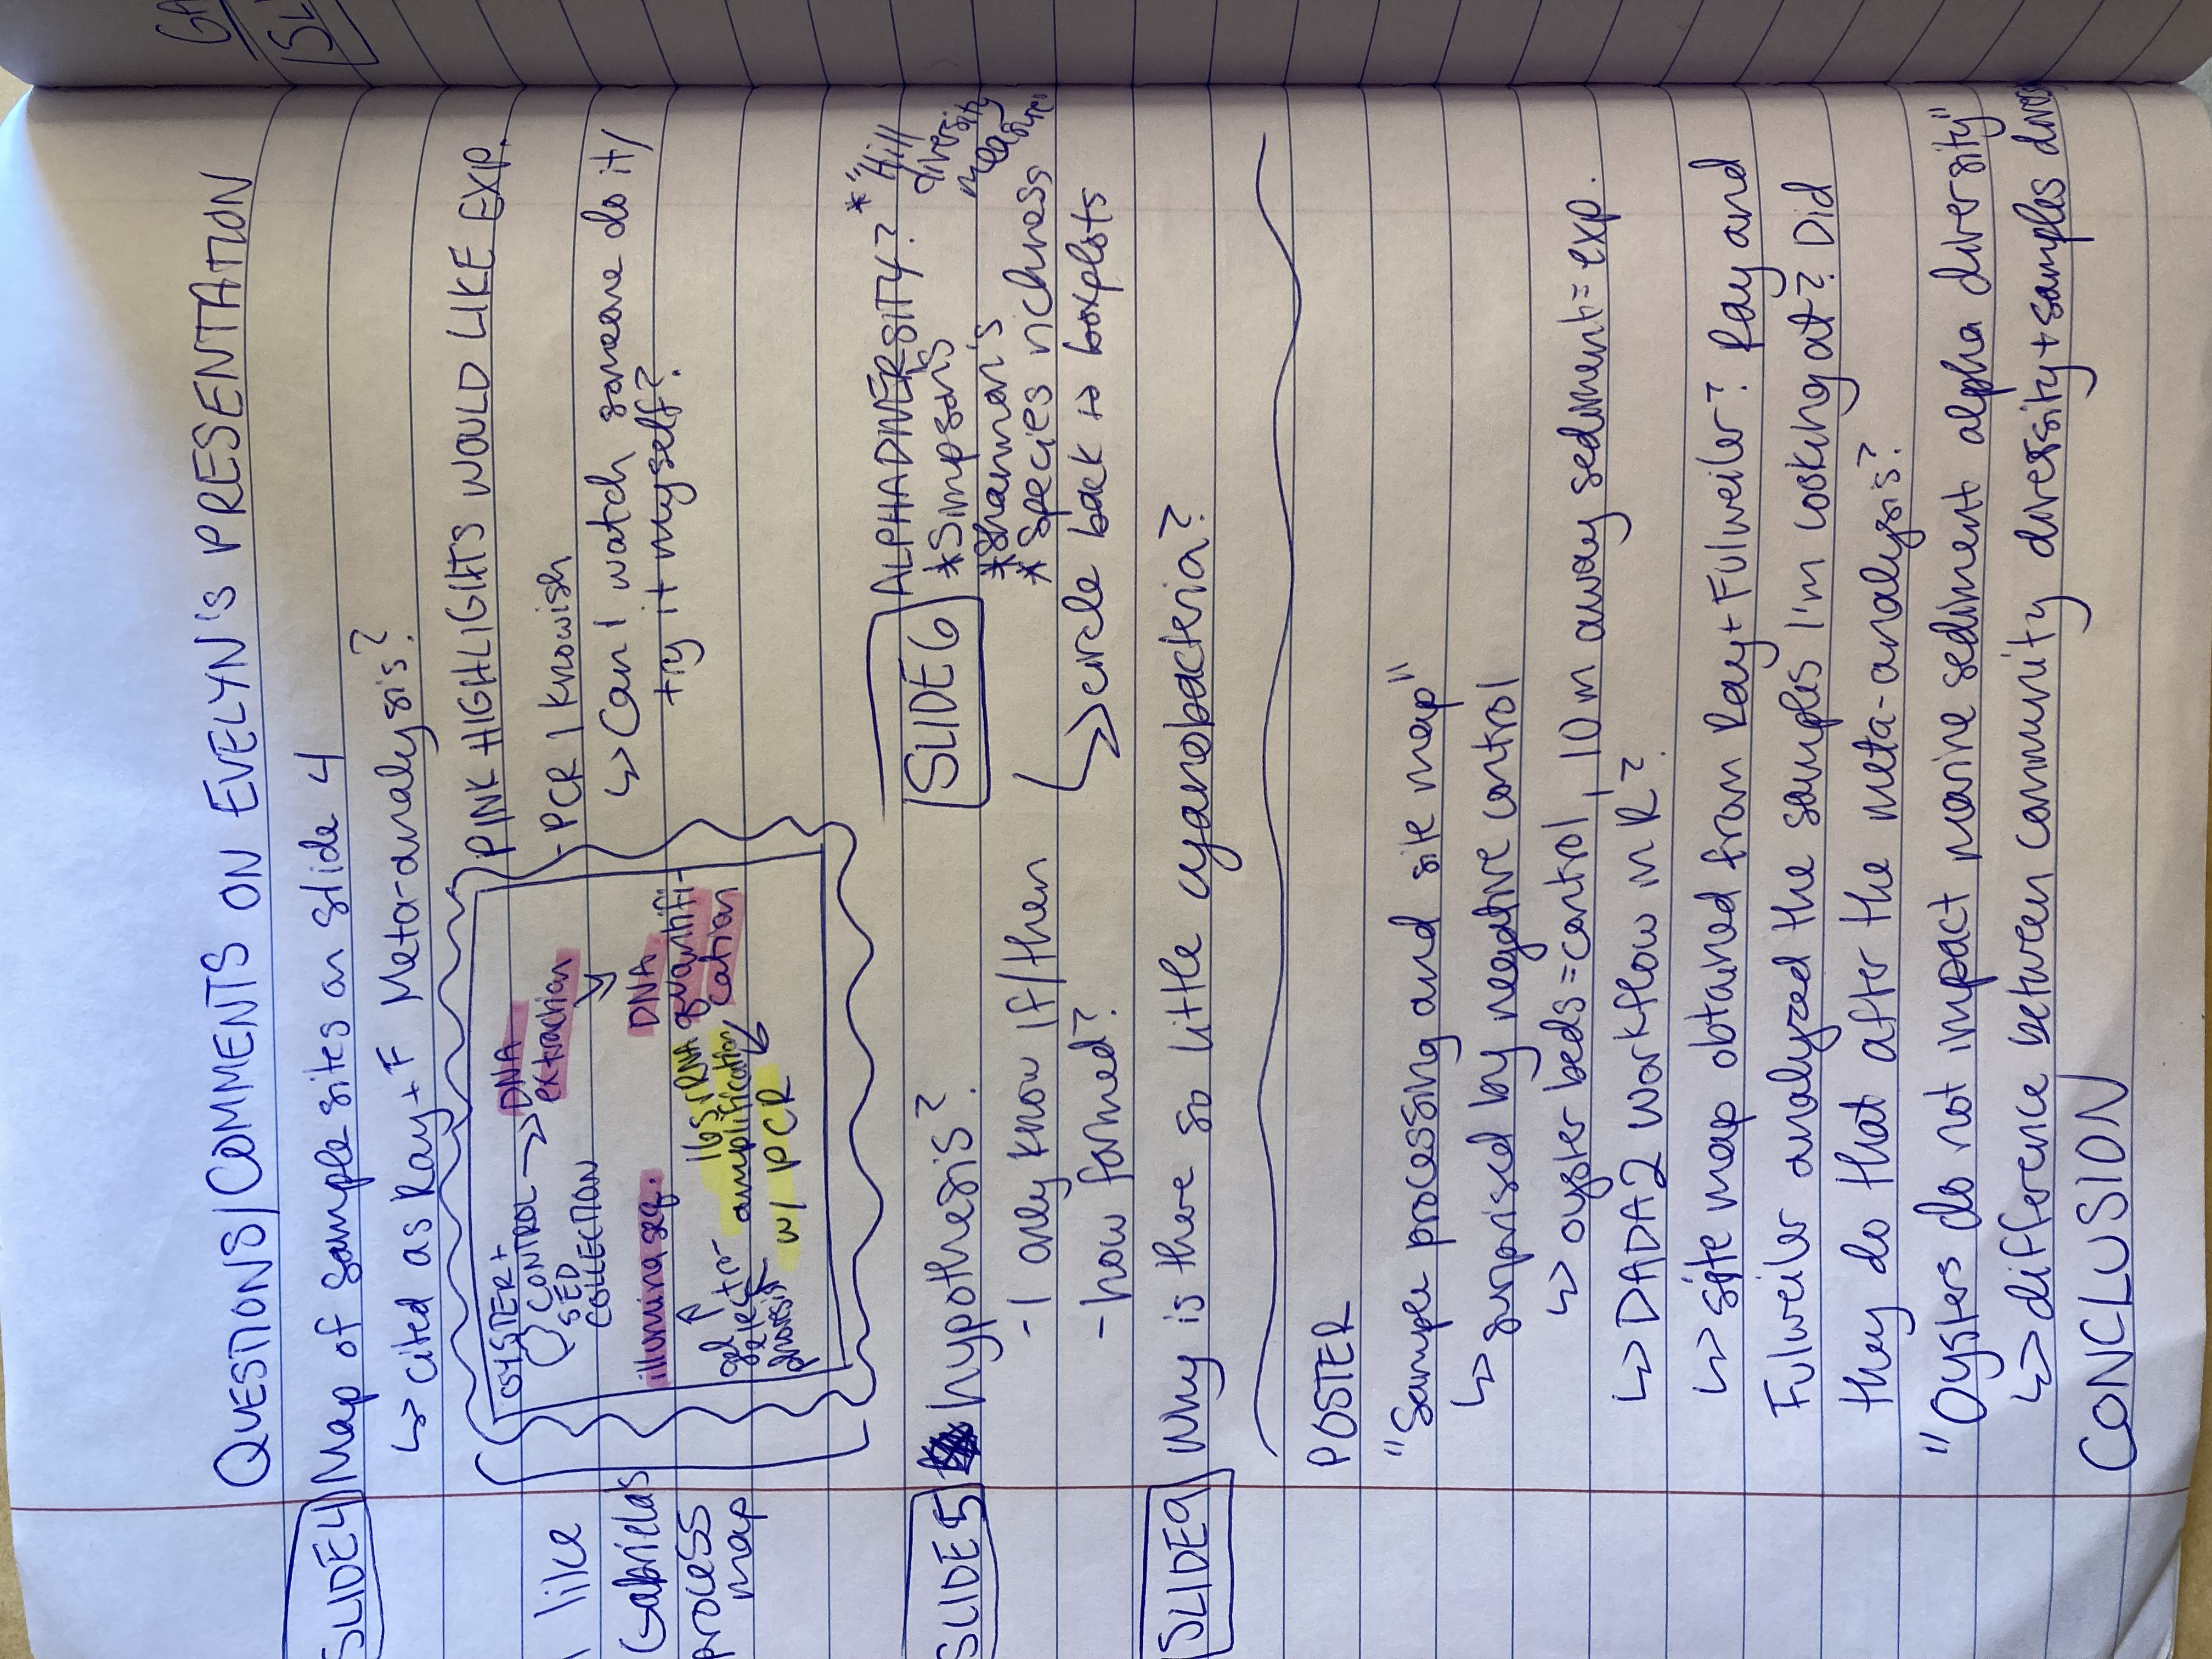 QUESTIONS/COMMENTS ON EVELYN'S PRESENTATION
SLIDE 4 Map of sample sites on slide 4
↳ cited as Ray + F Meta-analysis?
I like
Gabriela's
process
map
OYSTER +
CONTROL
SED
COLLECTION
→ DNA
extraction
DNA
quantifi-
cation
16s rRNA
amplification
w/ PCR
gel
electro-
phoresis
illumina seq.
PINK HIGHLIGHTS WOULD LIKE EXP.
- PCR I knowish
↳ Can I watch someone do it/
try it myself?
SLIDE 5 hypothesis?
- I only know if/then
- how formed?
SLIDE 6 ALPHA DIVERSITY?
* Simpson's
* Shannon's
* Species richness
* "Hill
diversity
measure"
↳ circle back to boxplots
SLIDE 9 Why is there so little cyanobacteria?
POSTER
"Sample processing and site map"
↳ surprised by negative control
↳ oyster beds = control, 10 m away sediment = exp.
↳ DADA2 workflow in R?
↳ site map obtained from Ray + Fulweiler? Ray and
Fulweiler analyzed the samples I'm looking at? Did
they do that after the meta-analysis?
"Oysters do not impact marine sediment alpha diversity"
↳ difference between community diversity + samples divers
CONCLUSION